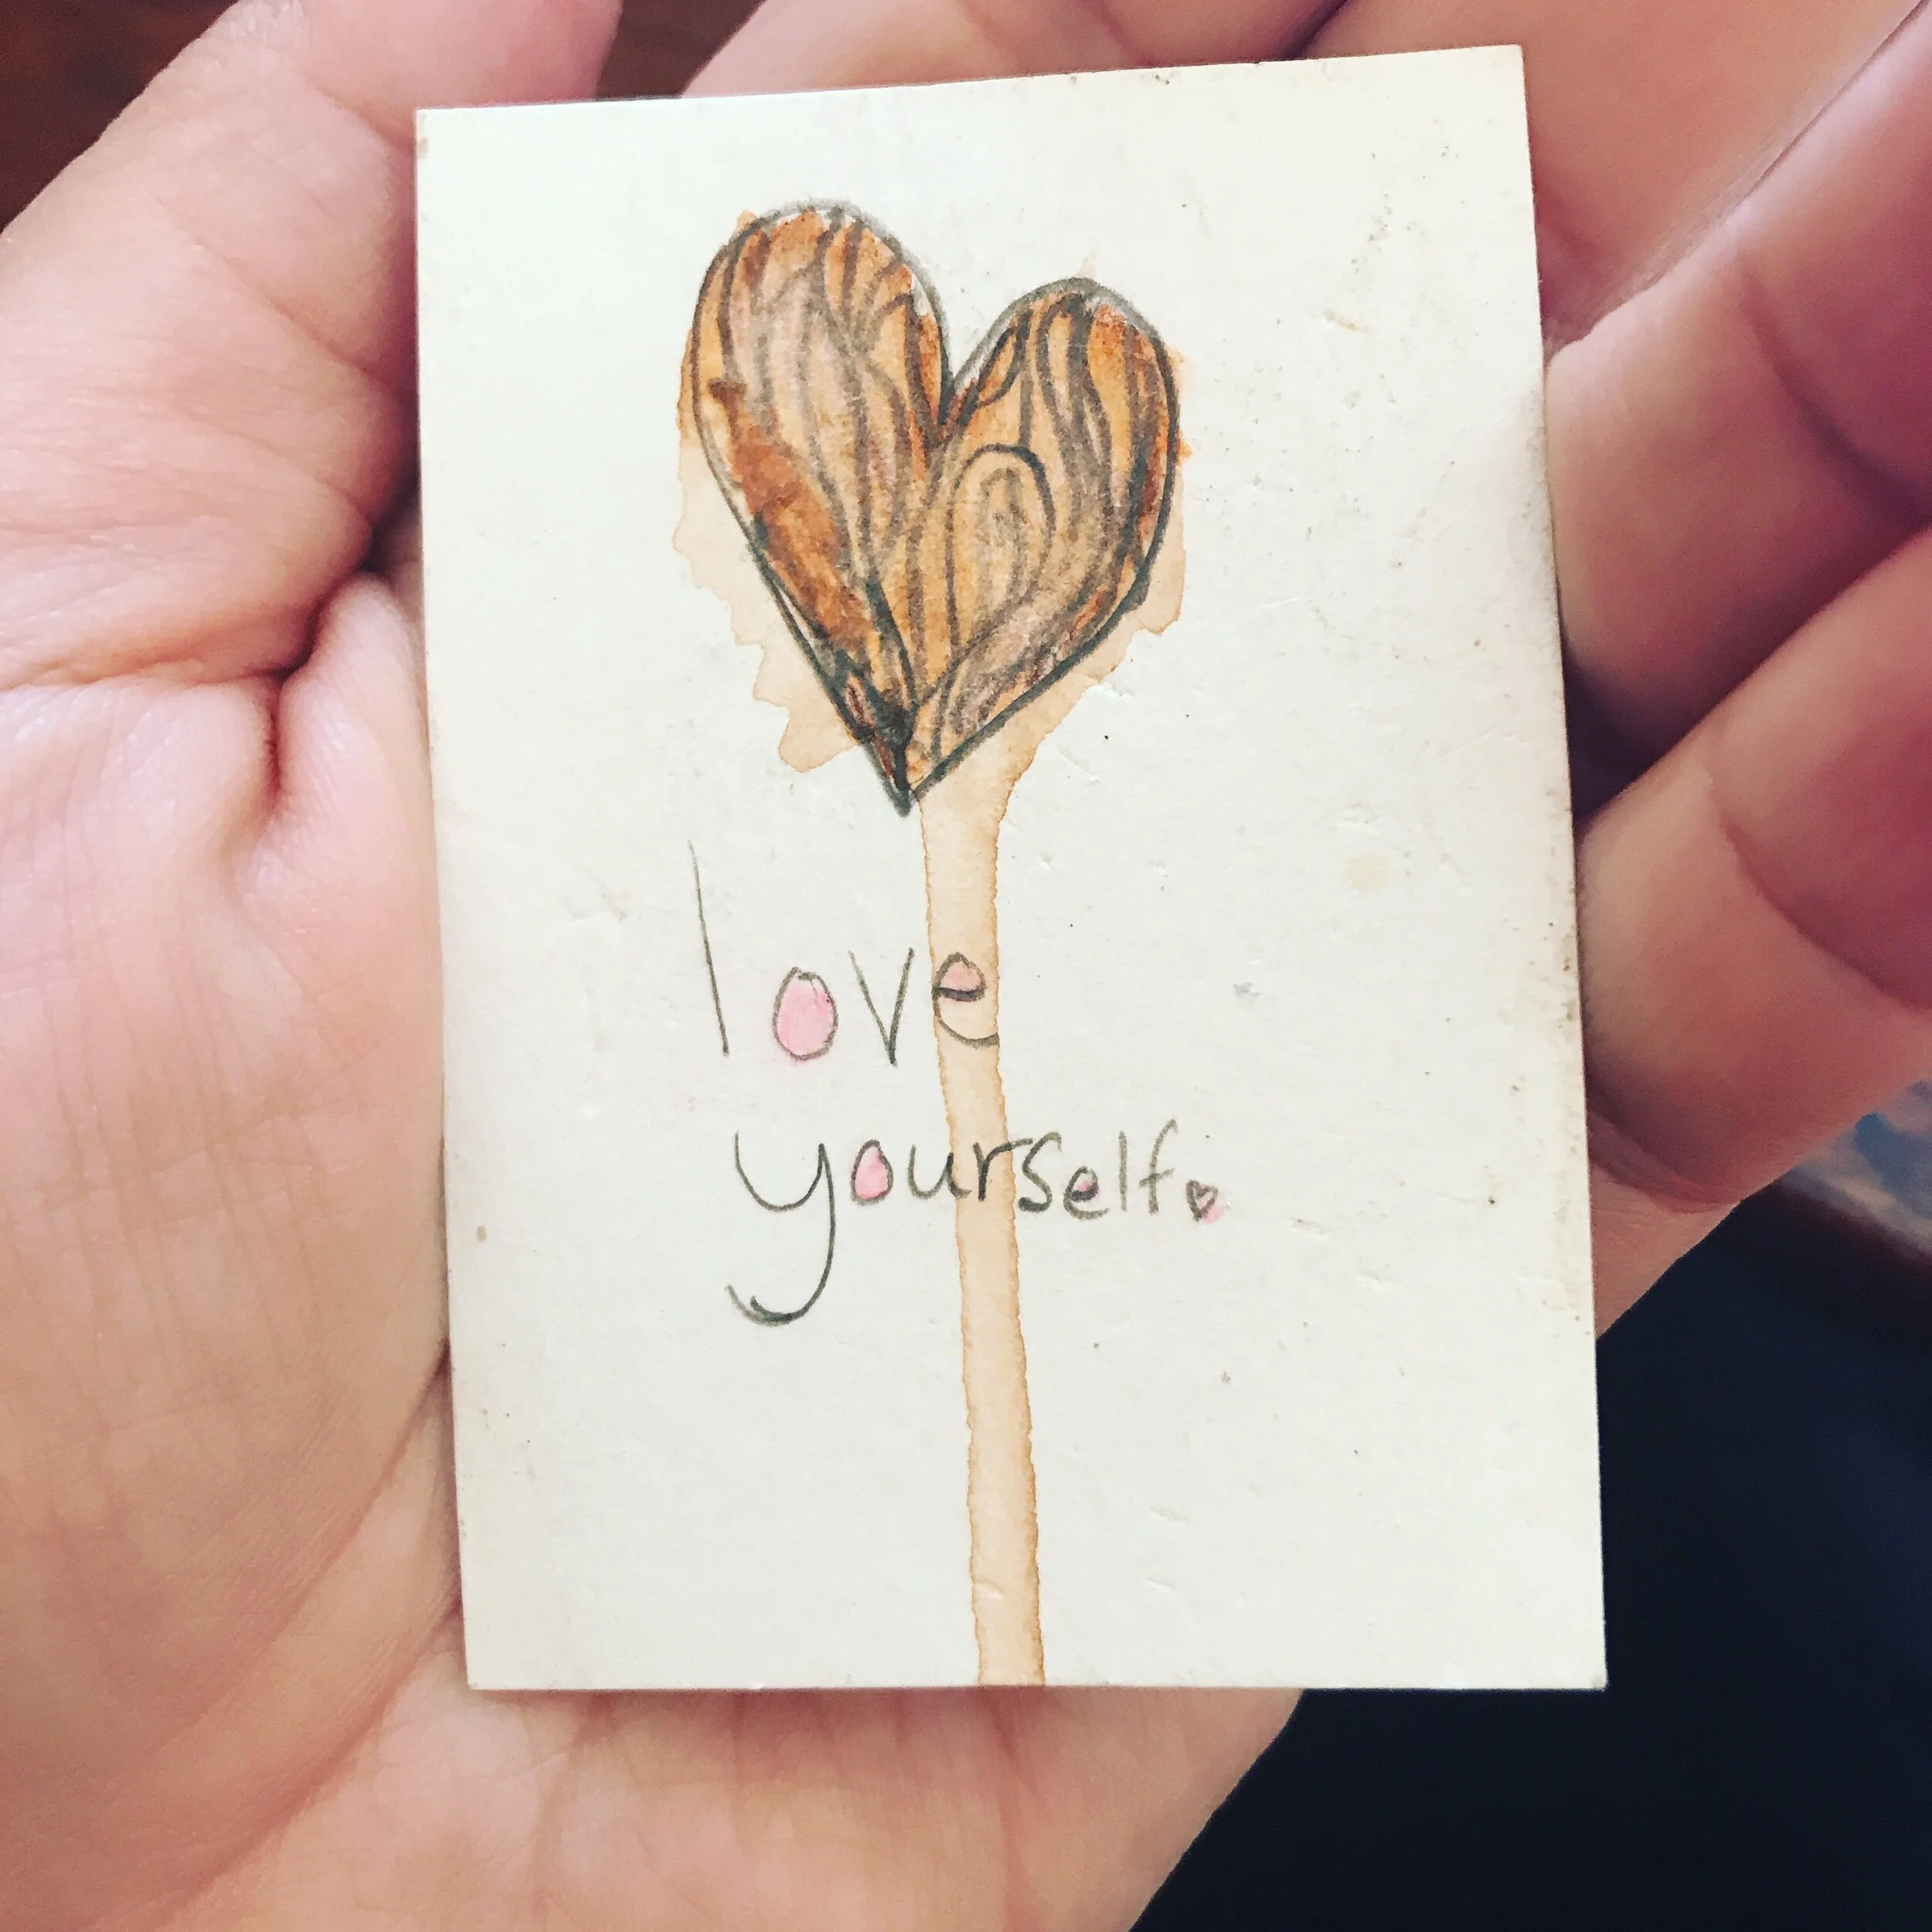 love
yourself.